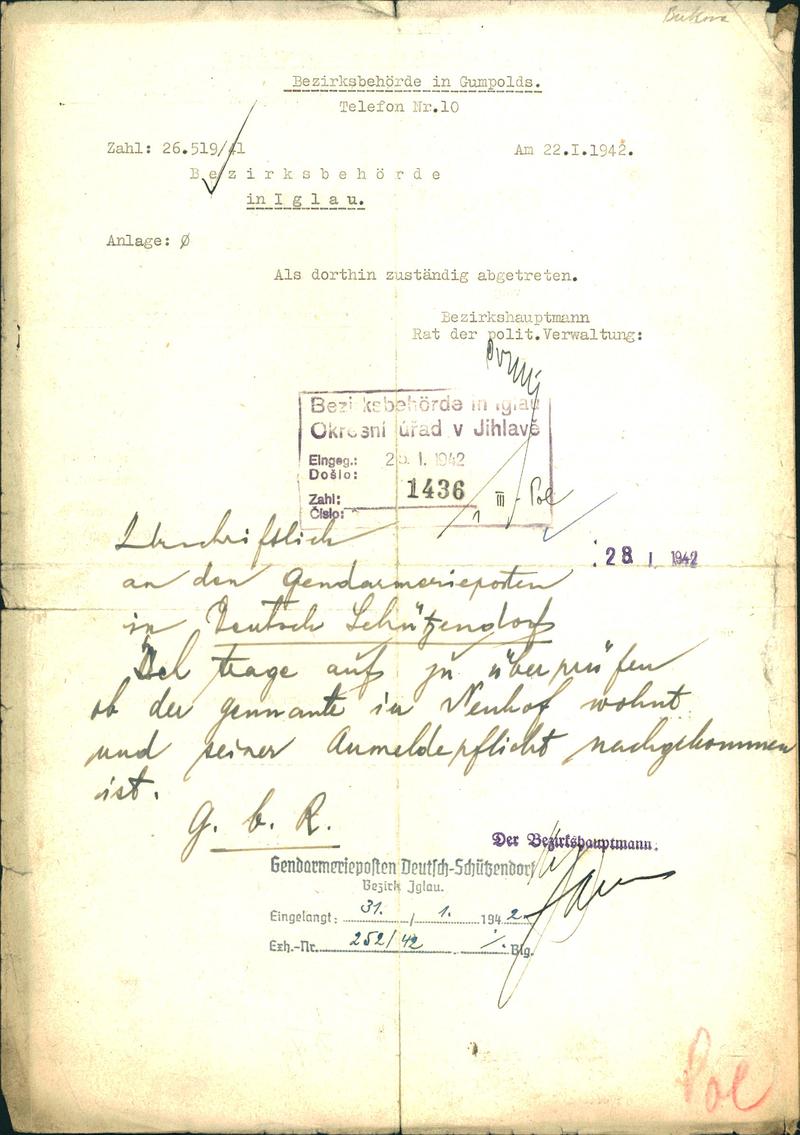 Bukova
Bezirksbehörde in Gumpolds.
Telefon Nr.10
Zahl: 26.519/41
Am 22.I.1942.
Bezirksbehörde
in Iglau.
Anlage: Ø
Als dorthin zuständig abgetreten.
Bezirkshauptmann
Rat der polit.Verwaltung:
Bezirksbehörde in Iglau
Okresní úřad v Jihlavě
Eingeg.:
Došlo:
2 . I. 1942
Zahl:
Číslo:
1436
III - Pol
Urschriftlich
28 I 1942
an den Gendarmerieposten
in Deutsch Schützendorf
trage auf zu überprüfen
ob der gennante in Neuhof wohnt
und seiner Anmeldepflicht nachgekommen
ist.
G. b. R.
Der Bezirkshauptmann.
Gendarmerieposten Deutsch-Schützendorf
Bezirk Iglau.
Eingelangt: 31. / 1. 1942.
Exh.-Nr. 252/42 ./. Blg.
Pol